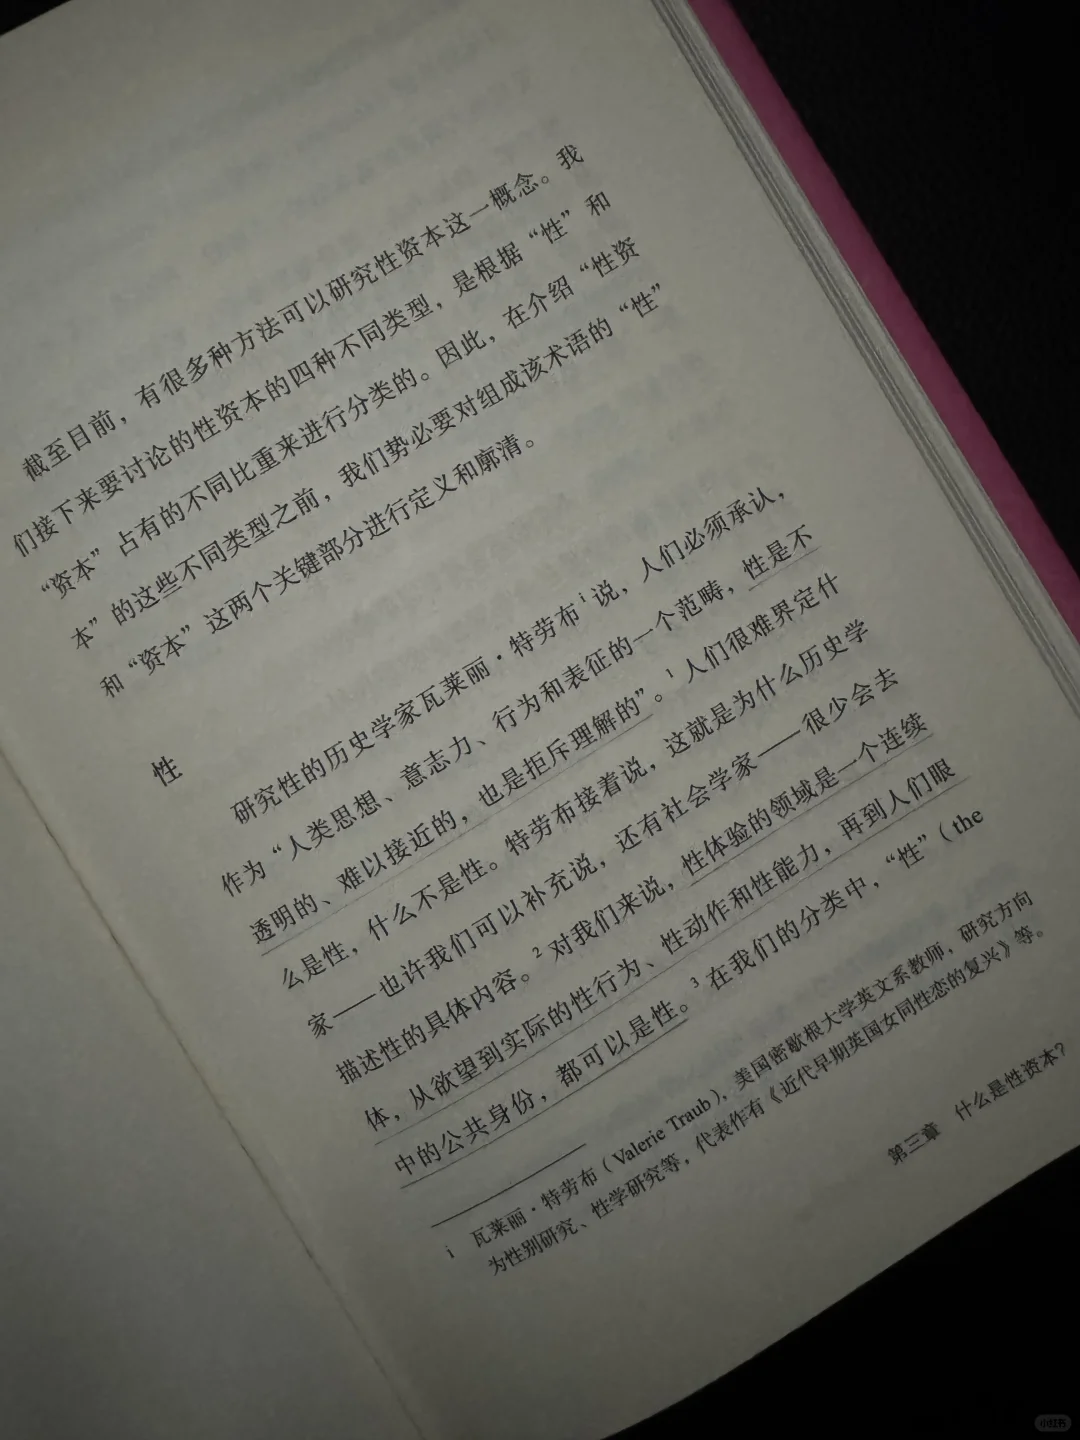 截至目前，有很多种方法可以研究性资本这一概念。我
们接下来要讨论的性资本的四种不同类型，是根据“性”和
“资本”占有的不同比重来进行分类的。因此，在介绍“性资
本”的这些不同类型之前，我们势必要对组成该术语的“性”
和“资本”这两个关键部分进行定义和廓清。
性
研究性的历史学家瓦莱丽·特劳布i说，人们必须承认，
作为“人类思想、意志力、行为和表征的一个范畴，性是不
透明的、难以接近的，也是拒斥理解的”。1人们很难界定什
么是性，什么不是性。特劳布接着说，这就是为什么历史学
家——也许我们可以补充说，还有社会学家——很少会去
描述性的具体内容。2对我们来说，性体验的领域是一个连续
体，从欲望到实际的性行为、性动作和性能力，再到人们眼
中的公共身份，都可以是性。3在我们的分类中，“性”（the
i 瓦莱丽·特劳布（Valerie Traub），美国密歇根大学英文系教师，研究方向
为性别研究、性学研究等，代表作有《近代早期英国女同性恋的复兴》等。
第三章 什么是性资本？
小红书